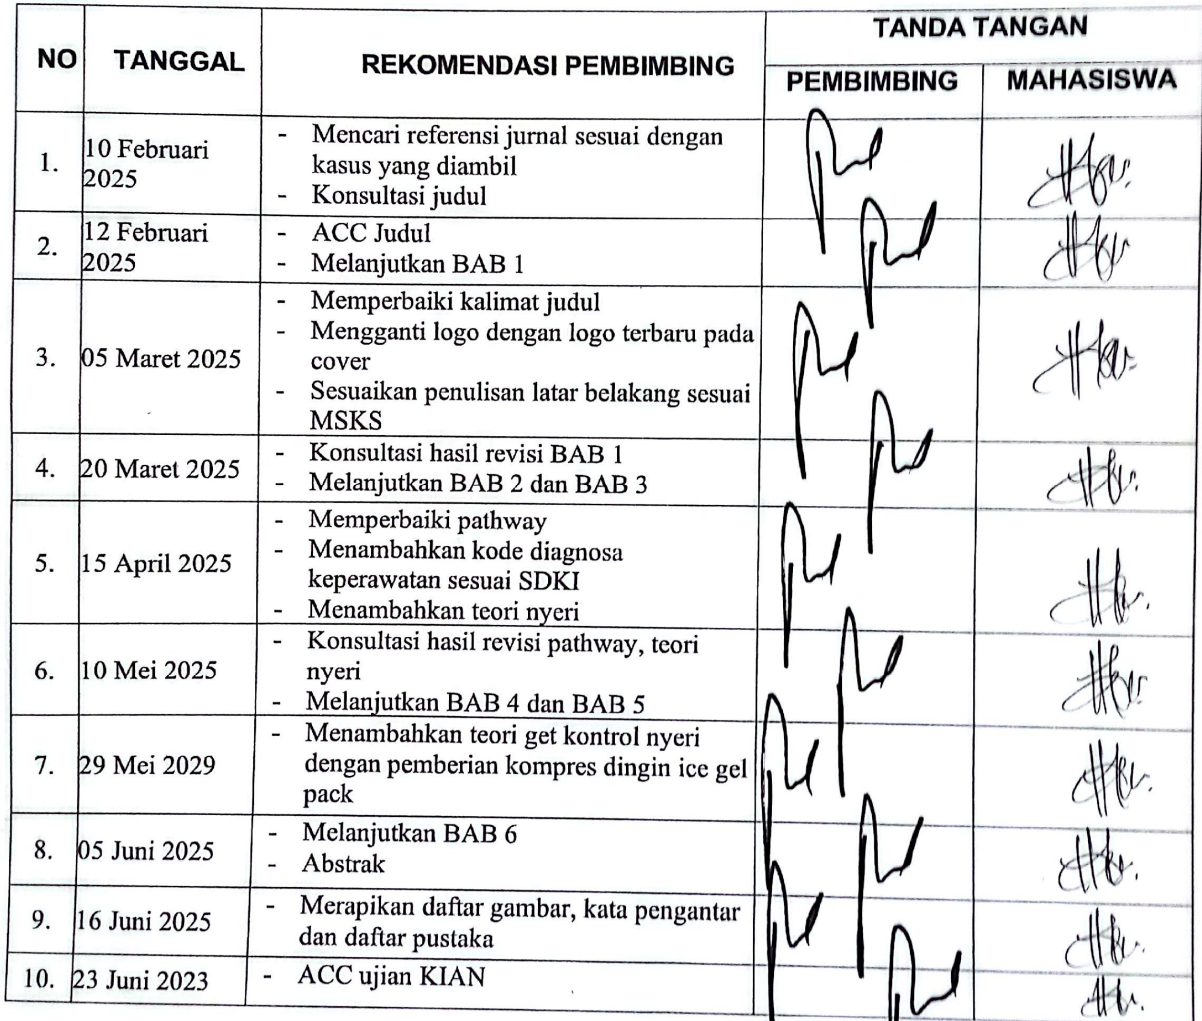 NO TANGGAL REKOMENDASI PEMBIMBING TANDA TANGAN
PEMBIMBING MAHASISWA
1. 10 Februari 2025
- Mencari referensi jurnal sesuai dengan
kasus yang diambil
- Konsultasi judul
2. 12 Februari 2025
- ACC Judul
- Melanjutkan BAB 1
3. 05 Maret 2025
- Memperbaiki kalimat judul
- Mengganti logo dengan logo terbaru pada
cover
- Sesuaikan penulisan latar belakang sesuai
MSKS
4. 20 Maret 2025
- Konsultasi hasil revisi BAB 1
- Melanjutkan BAB 2 dan BAB 3
5. 15 April 2025
- Memperbaiki pathway
- Menambahkan kode diagnosa
keperawatan sesuai SDKI
- Menambahkan teori nyeri
6. 10 Mei 2025
- Konsultasi hasil revisi pathway, teori
nyeri
- Melanjutkan BAB 4 dan BAB 5
7. 29 Mei 2029
- Menambahkan teori get kontrol nyeri
dengan pemberian kompres dingin ice gel
pack
8. 05 Juni 2025
- Melanjutkan BAB 6
- Abstrak
9. 16 Juni 2025
- Merapikan daftar gambar, kata pengantar
dan daftar pustaka
10. 23 Juni 2023
- ACC ujian KIAN